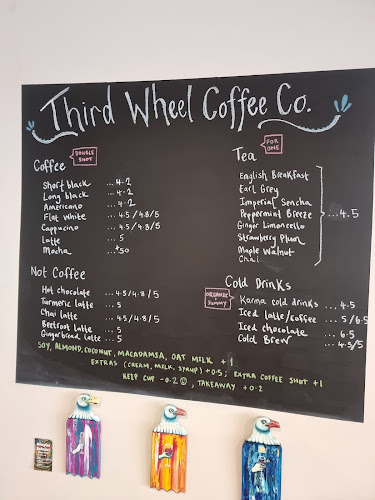 Third Wheel Coffee Co.
Coffee
DOUBLE SHOT
Short black ... 4.2
Long black ... 4.2
Americano ... 4.2
Flat white ... 4.5/4.8/5
Cappucino ... 4.5/4.8/5
Latte ... 5
Mocha ... +.50
Not Coffee
Hot chocolate ... 4.5/4.8/5
Turmeric latte ... 5
Chai latte ... 4.5/4.8/5
Beetroot latte ... 5
Gingerbread latte ... 5
Tea
FOR ONE
English Breakfast
Earl Grey
Imperial Sencha
Peppermint Breeze ... 4.5
Ginger Limoncello
Strawberry Plum
Maple Walnut
Chai
Cold Drinks
ORGANIC + YUMMY
Karma cold drinks ... 4.5
Iced latte/coffee ... 5/6.5
Iced chocolate ... 6.5
Cold Brew ... 4.5/5
SOY, ALMOND, COCONUT, MACADAMIA, OAT MILK +1
EXTRAS (CREAM, MILK, SYRUP) +0.5; EXTRA COFFEE SHOT +1
KEEP CUP -0.2 , TAKEAWAY +0.2